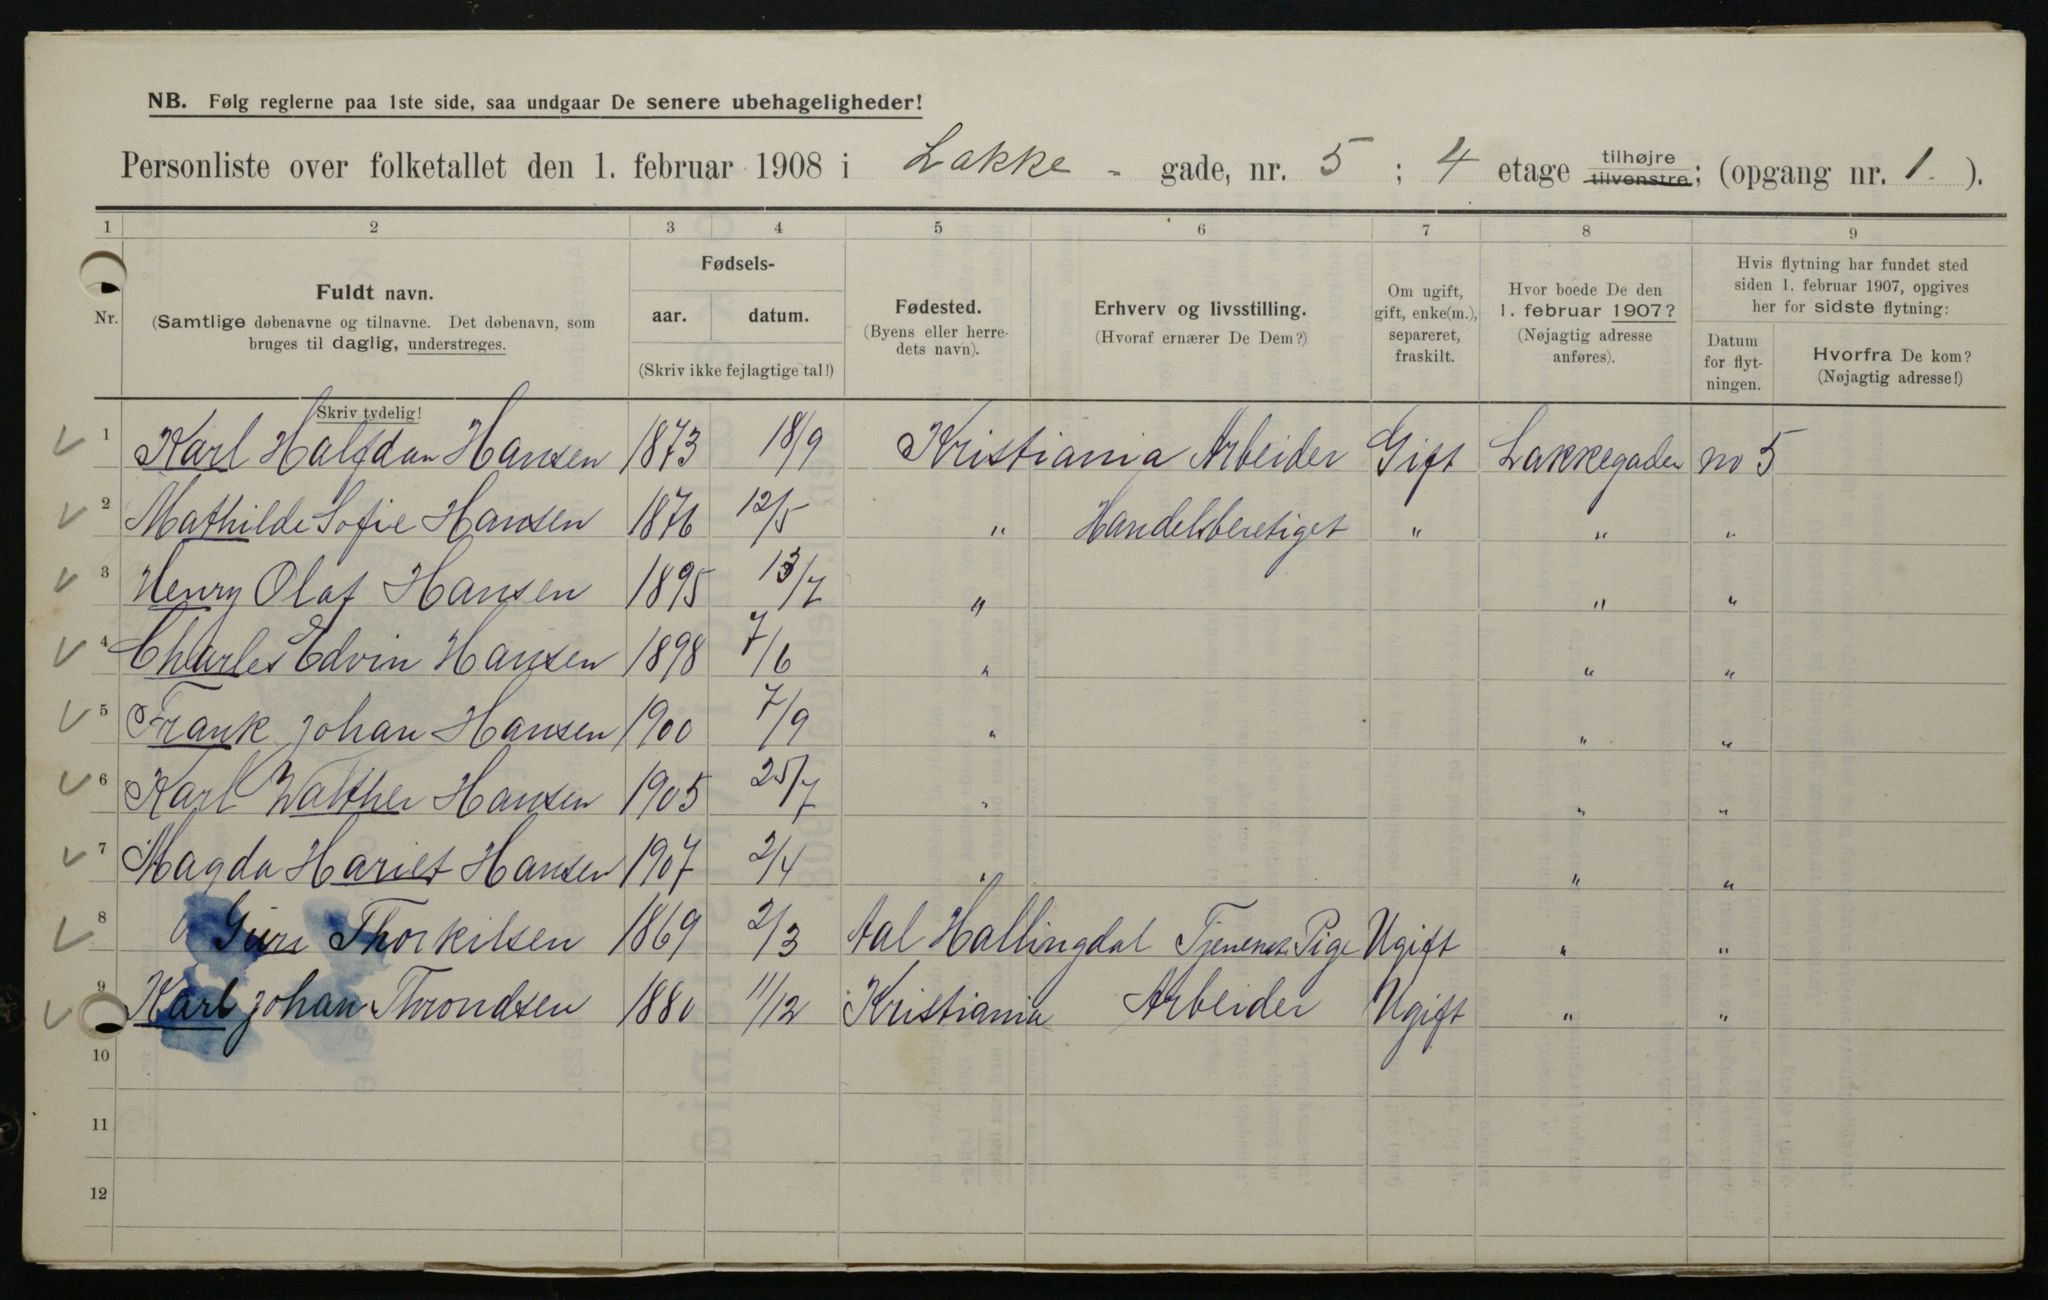 NB. Følg reglerne paa 1ste side, saa undgaar De senere ubehageligheder!
Personliste over folketallet den 1. februar 1908 i Lakke - gade, nr. 5 ; 4 etage tilhøjre tilvenstre; (opgang nr. 1. ).
1 2 3 4 5 6 7 8 9
Nr.
Fuldt navn.
(Samtlige døbenavne og tilnavne. Det døbenavn, som
bruges til daglig, understreges.
Skriv tydelig!
Fødsels-
aar. datum.
(Skriv ikke fejlagtige tal!)
Fødested.
(Byens eller herre-
dets navn).
Erhverv og livsstilling.
(Hvoraf ernærer De Dem?)
Om ugift,
gift, enke(m.),
separeret,
fraskilt.
Hvor boede De den
1. februar 1907?
(Nøjagtig adresse
anføres).
Hvis flytning har fundet sted
siden 1. februar 1907, opgives
her for sidste flytning:
Datum
for flyt-
ningen.
Hvorfra De kom?
(Nøjagtig adresse!)
1 Karl Halfdan Hansen 1873 18/9 Kristiania Arbeider Gift Lakkegaden no 5
2 Mathilde Sofie Hansen 1876 12/5 " Handelsberetiget " " "
3 Henry Olaf Hansen 1895 13/7 " " "
4 Charles Edvin Hansen 1898 7/6 " " "
5 Frank Johan Hansen 1900 7/9 " " "
6 Karl Walther Hansen 1905 25/7 " " "
7 Magda Hariet Hansen 1907 2/4 " " "
8 Guri Thorkilsen 1869 2/3 Aal Hallingdal Tjeneste Pige Ugift " "
9 Karl Johan Throndsen 1880 11/12 Kristiania Arbeider Ugift " "
10
11
12